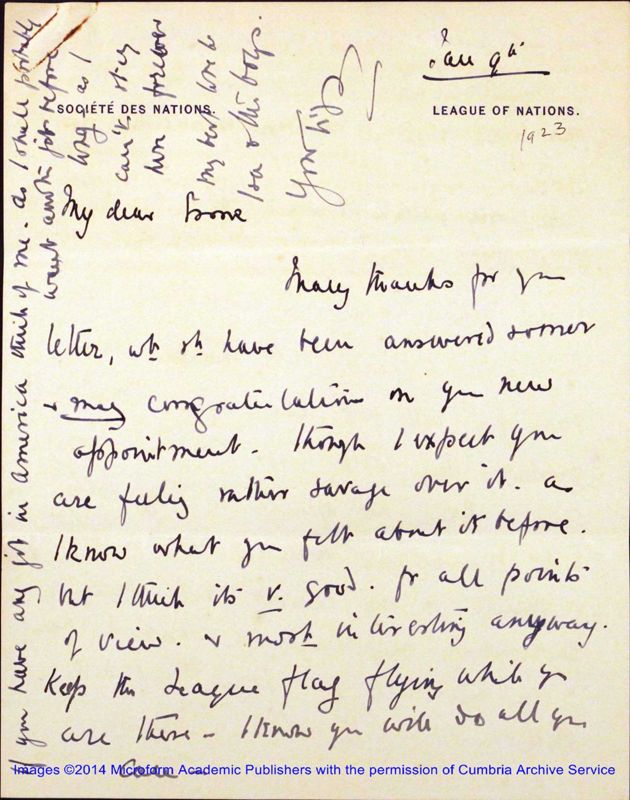 Jan 9th
SOCIÉTÉ DES NATIONS.
LEAGUE OF NATIONS.
1923
My dear
Many thanks for yr
letter, wh sh have been answered sooner
& many congratulations on yr new
appointment. Though I expect you
are feeling rather savage over it. as
I know what you felt about it before.
but I think its v. good. fr all points
of view. & most interesting anyway.
Keep the League flag flying while yr
are there - I know you will do all you
can -
If you have any job in America think of me. as I shall probably
want another job before
long as I
can't stay
here forever
My best love to
& the boys.
Yours
Images ©2014 Microform Academic Publishers with the permission of Cumbria Archive Service